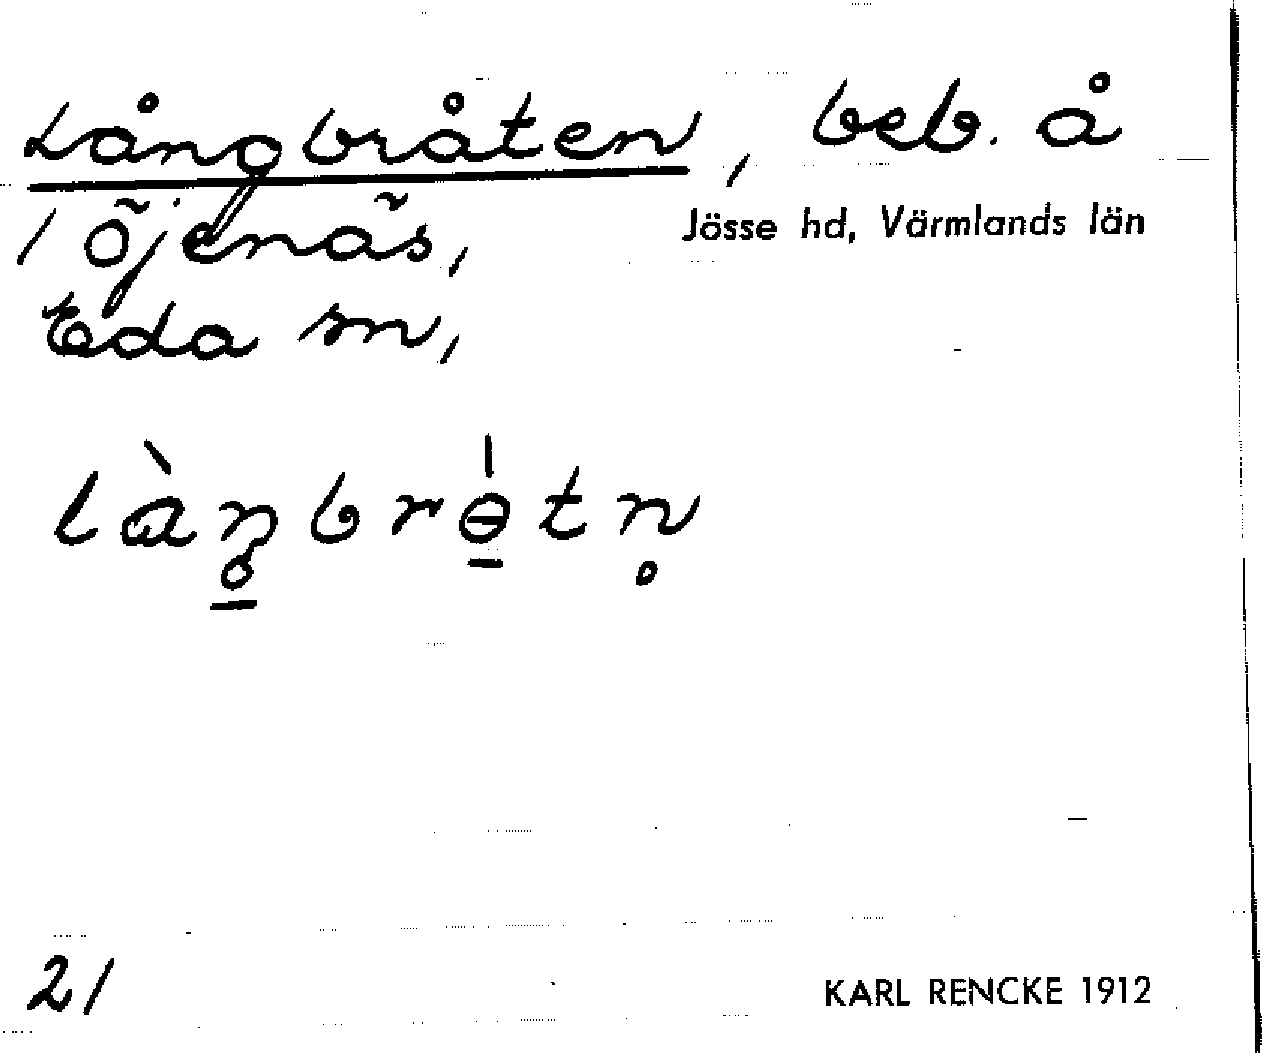 Långbråten, beb. å
1 Öjenäs,
Jösse hd, Värmlands län
Eda sn,
21
KARL RENCKE 1912